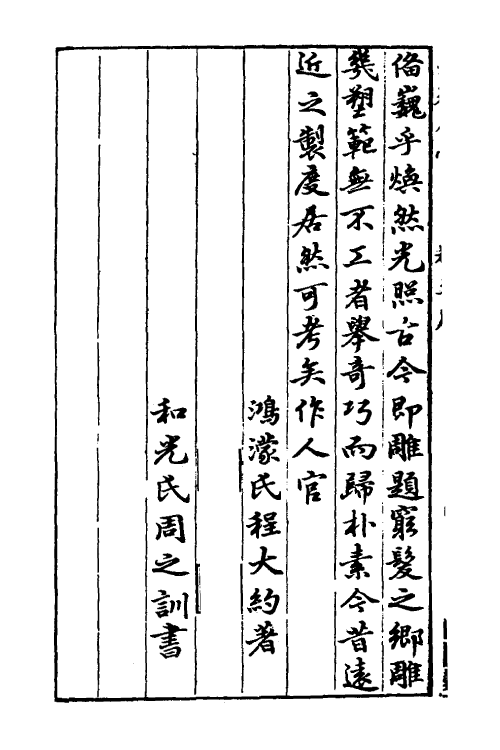 備巍乎煥然光照古今即雕題窮髮之鄉雕
幾塑範無不工者舉奇巧而歸朴素今昔遠
近之製度居然可考矣作人官
鴻濛氏程大約著
和光氏周之訓書